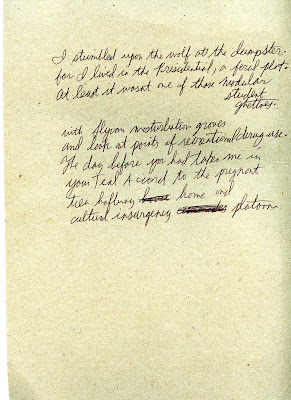 I stumbled upon the wolf at the dumpster
for I lived in the Presidential, a feral plot.
At least it wasnt one of those modular
student
ghettoes.
with flyson masturbation groves
and look at points of recreational drug use.
The day before you had taken me in
your Teal Accord to the pregnant
teen halfway home and
cultural insurgency platoon